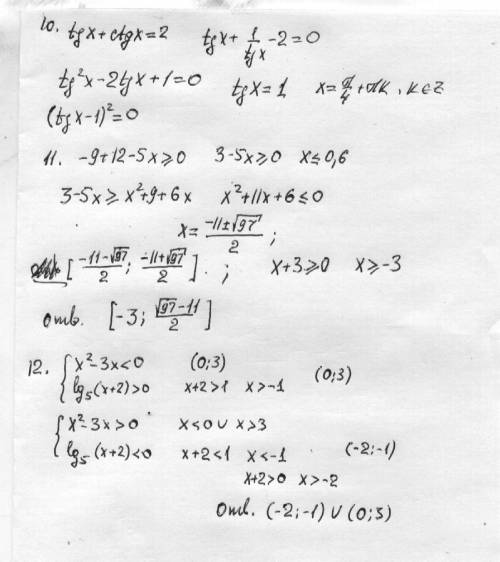 10. tgx+ctgx=2 tgx+1/tgx-2=0
tg²x-2tgx+1=0 tgx=1 x=π/4+πk, k∈z
(tgx-1)²=0
11. -9+12-5x⩾0 3-5x⩾0 x≤0,6
3-5x⩾x²+9+6x x²+11x+6≤0
x=(-11±√97)/2;
[(-11-√97)/2; (-11+√97)/2]. ; x+3⩾0 x⩾-3
Отв. [-3; (√97-11)/2]
12. {x²-3x<0 (0;3)
lg₅(x+2)>0 x+2>1 x>-1 (0;3)
{x²-3x>0 x<0 ∪ x>3
lg₅(x+2)<0 x+2<1 x<-1 (-2;-1)
x+2>0 x>-2
Отв. (-2;-1) ∪ (0;3)